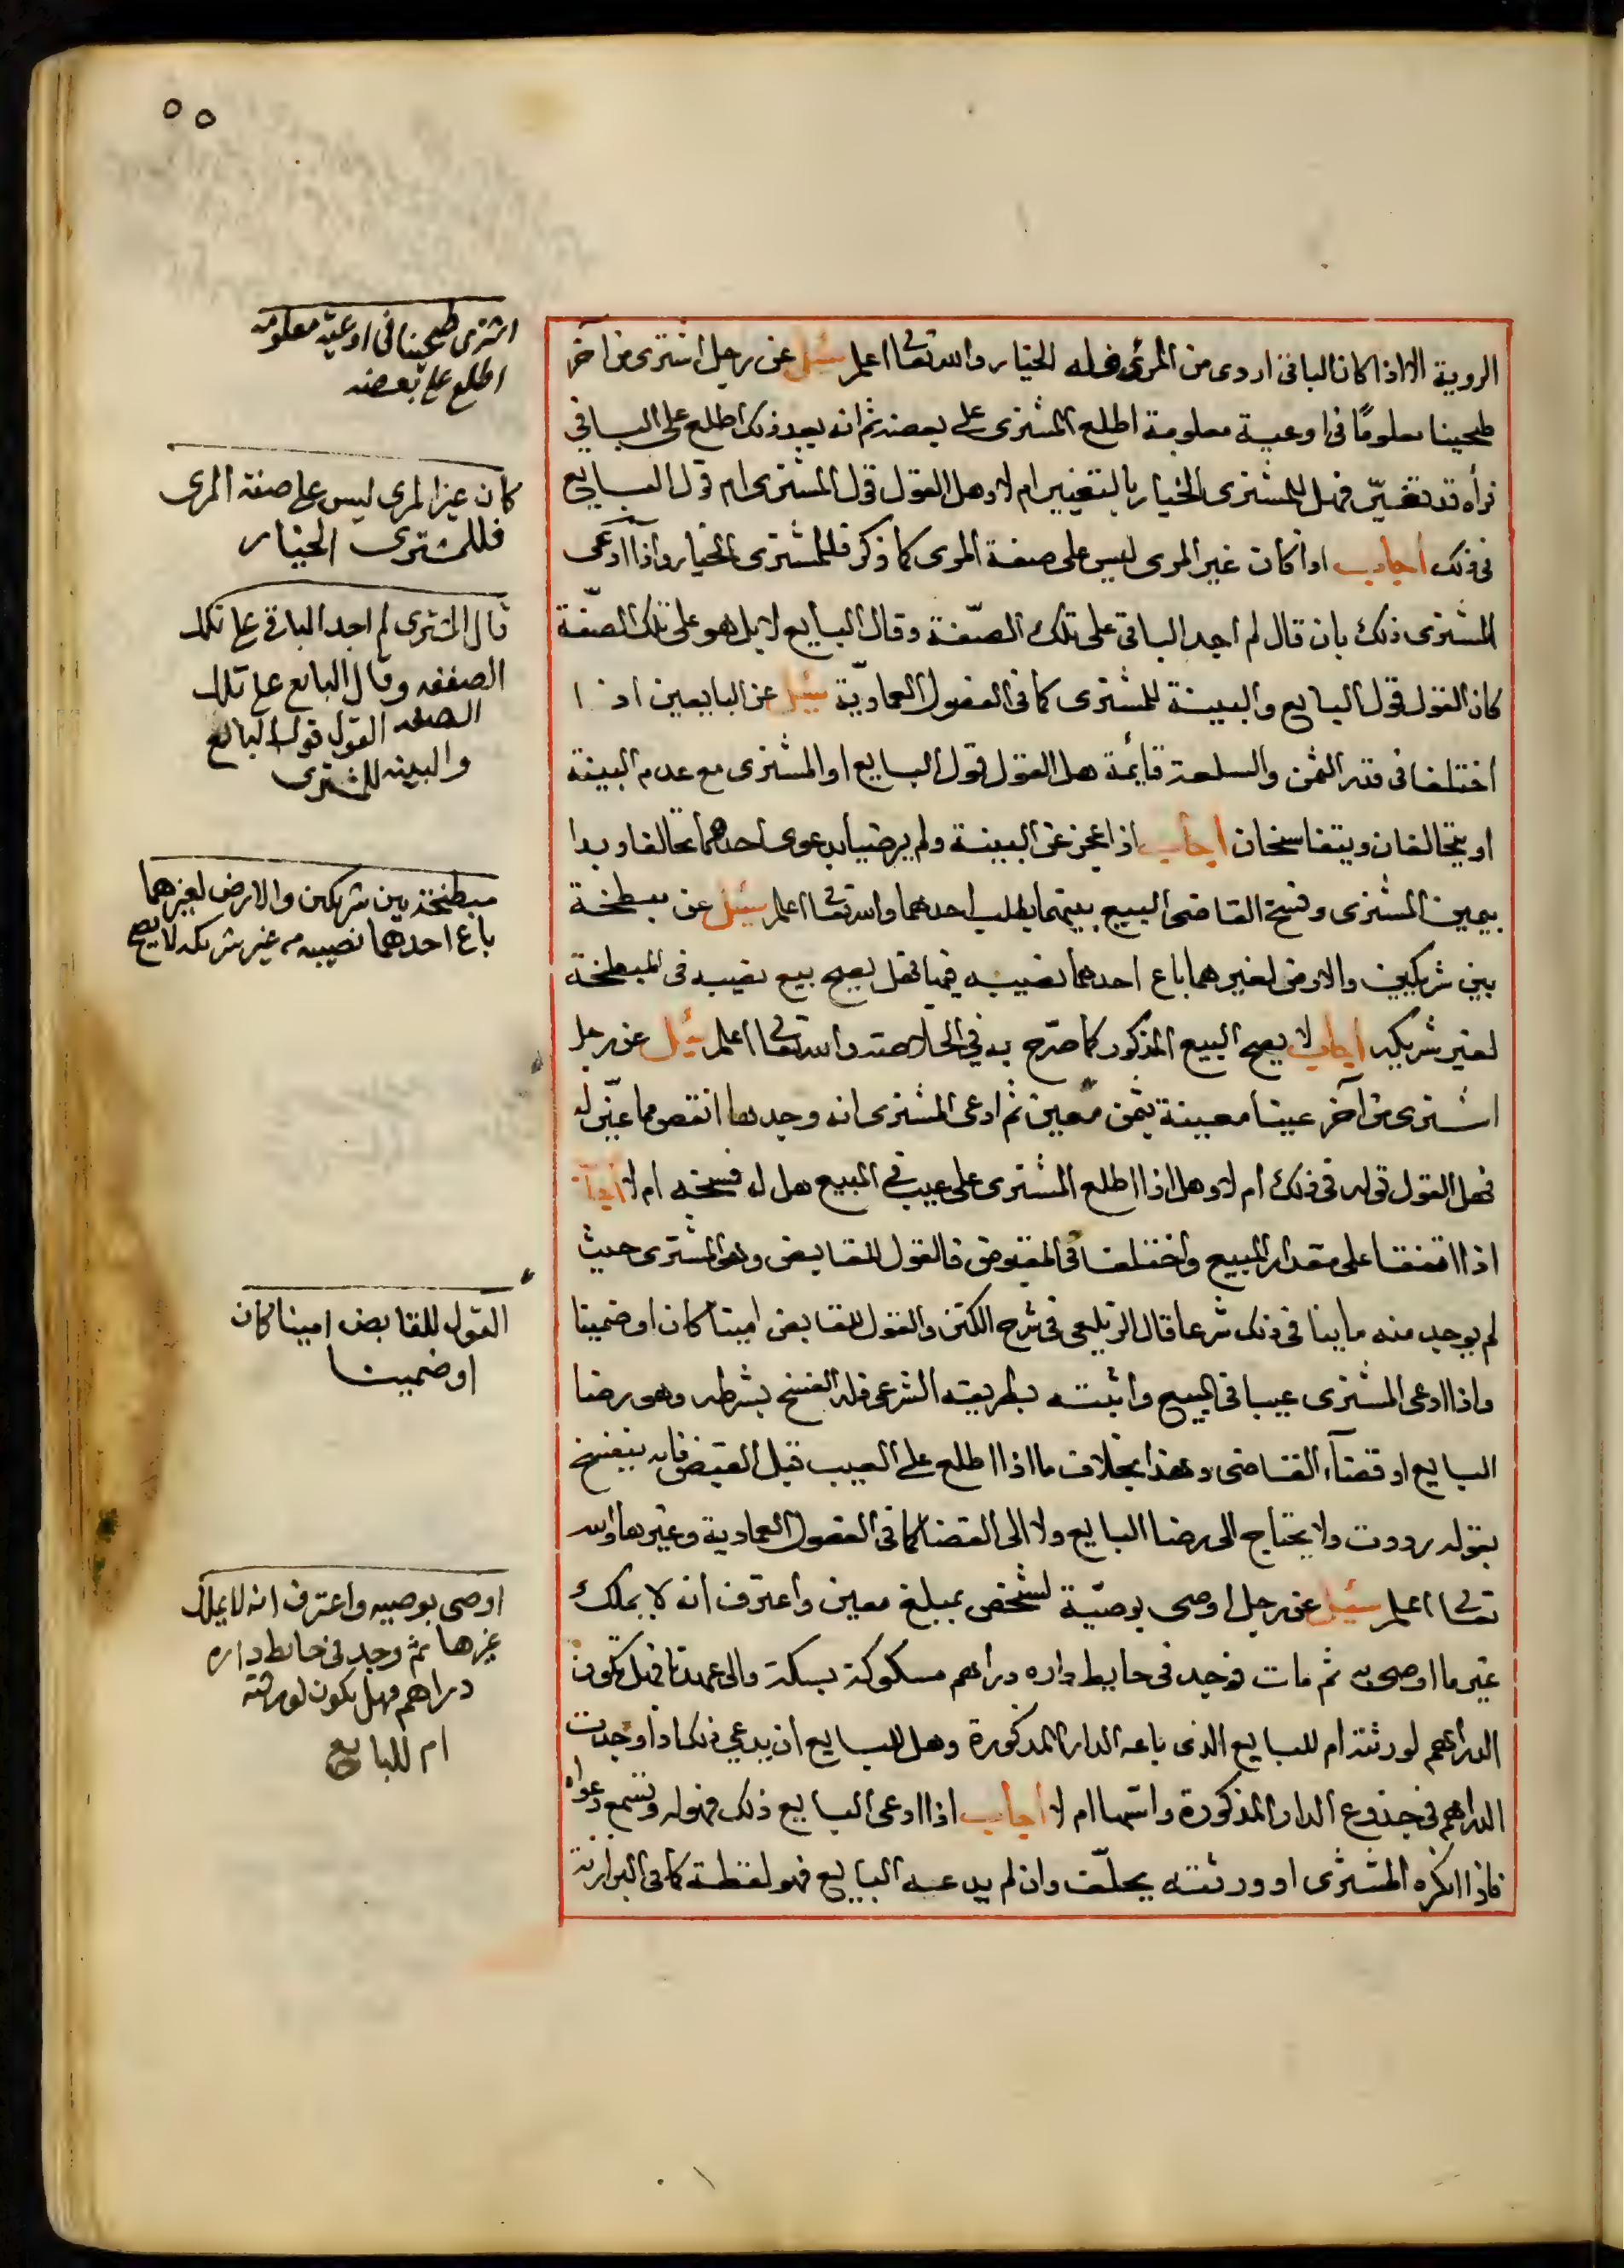 ٥٥
الروية الا اذا كان الباقي اردى من المرئ فله الخيار والله تعالى اعلم سئل عن رجل اشترى من آخر
طحينا معلومًا في اوعية معلومة اطلع المشترى على بعضه ثم انه بعد ذلك اطلع على الباقي
فرأه قد تغيّر فهل للمشترى الخيار بالتغيير ام لا وهل القول قول المشترى ام قول البايع
في ذلك أجاب اذا كان غير المرى ليس على صفة المرى كما ذكر فللمشترى الخيار واذا ادّعى
المشترى ذلك بان قال لم اجد الباقي على تلك الصّفة وقال البايع لا بل هو على تلك الصّفة
كان القول قول البايع والبينة للمشترى كما في الفصول العماديّة سئل عن البايعين اذا
اختلفا في قدر الثمن والسلعة قايمة هل القول قول البايع او المشترى مع عدم البينة
او يتحالفان ويتفاسخان أجاب اذا عجز عن البينة ولم يرضيا بدعوى احدهما تحالفا وبدا
بيمين المشترى وفسخ القاضى البيع بينهما بطلب احدهما والله تعالى اعلم سئل عن مبطخة
بين شريكين والارض لغيرهما باع احدهما نصيبه فيها فهل يصح بيع نصيبه في المبطخة
لغير شريكه أجاب لا يصح البيع المذكور كما صرّح به في الخلاصة والله تعالى اعلم سئل عن رجل
اشترى من آخر عينا معينة بثمن معين ثم ادعى المشترى انه وجدها انقص مما عيّن له
فهل القول قوله في ذلك ام لا وهل اذا اطلع المشترى على عيب في المبيع هل له فسخه ام لا أجاب
اذا اتفقا على مقدار المبيع واختلفا في المقبوض فالقول للقابض وهو المشترى حيث
لم يوجد منه ما ينافى ذلك شرعا قال الزيلعى في شرح الكنز والقول للقابض امينا كان او ضمينا
واذا ادعى المشترى عيبا في المبيع واثبته بطريقه الشرعى فله الفسخ بشرطه وهو رضا
البايع او قضآء القاضى وهذا بخلاف ما اذا اطلع على العيب قبل القبض فانه ينفسخ
بقوله رددت ولا يحتاج الى رضا البايع ولا الى القضا كما في الفصول العمادية وغيرها والله
تعالى اعلم سئل عن رجل اوصى بوصيّة لشخص بمبلغ معين واعترف انه لا يملك
غير ما اوصى به ثم مات فوجد في حايط داره دراهم مسكوكة بسكة فهل تكون
الدراهم لورثته ام للبايع الذى باعه الدار المذكورة وهل للبايع ان يدعي ذلك اذا وجدت
الدراهم في جذوع الدار المذكورة واسّها ام لا أجاب اذا ادعى البايع ذلك فهو له وتسمع دعواه
فاذا انكره المشترى او ورثته يحلّف وان لم يدعه البايع فهو لقطة كما في البزازية
اشترى طحينا في اوعية معلومه
اطلع على بعضه
كان غير المرى ليس على صفة المرى
فللمشترى الخيار
قال المشترى لم اجد الباقي على تلك
الصفه وقال البايع على تلك
الصفه القول قول البايع
والبينه للمشترى
مبطخة بين شريكين والارض لغيرهما
باع احدهما نصيبه من غير شريكه لا يصح
القول للقابض امينا كان
او ضمينا
اوصى بوصيه واعترف انه لا يملك
غيرها ثم وجد في حايط داره
دراهم فهل يكون لورثته
ام للبايع